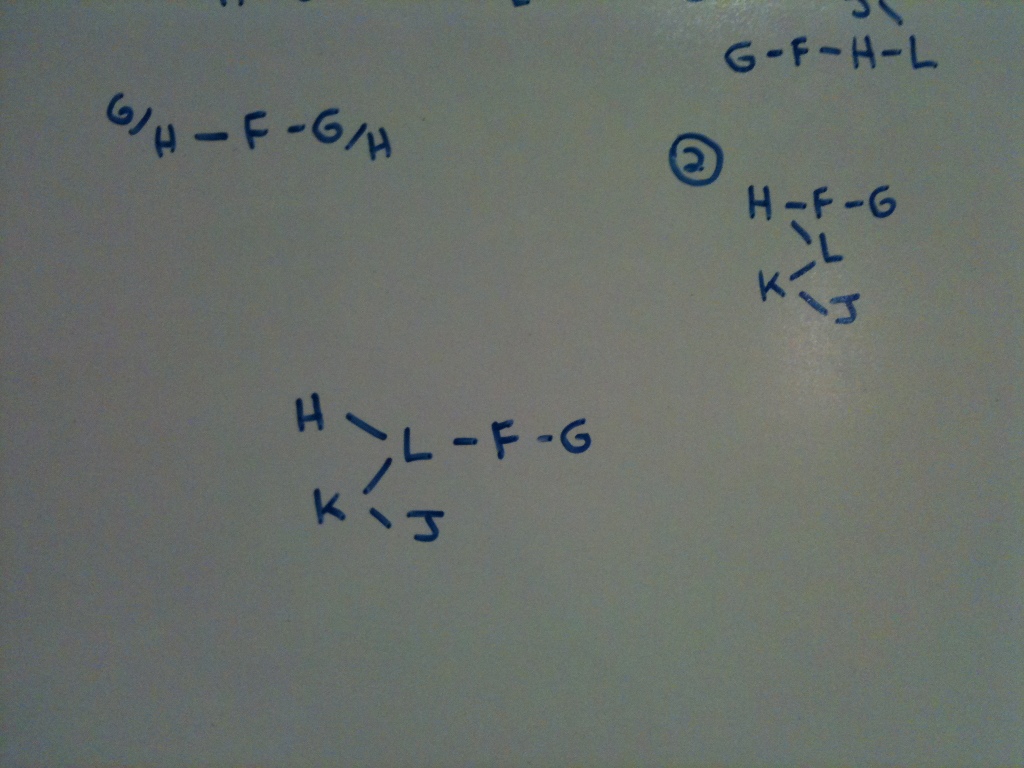 G-F-H-L
G/H-F-G/H
2
H-F-G
L
K
J
H
L-F-G
K
J